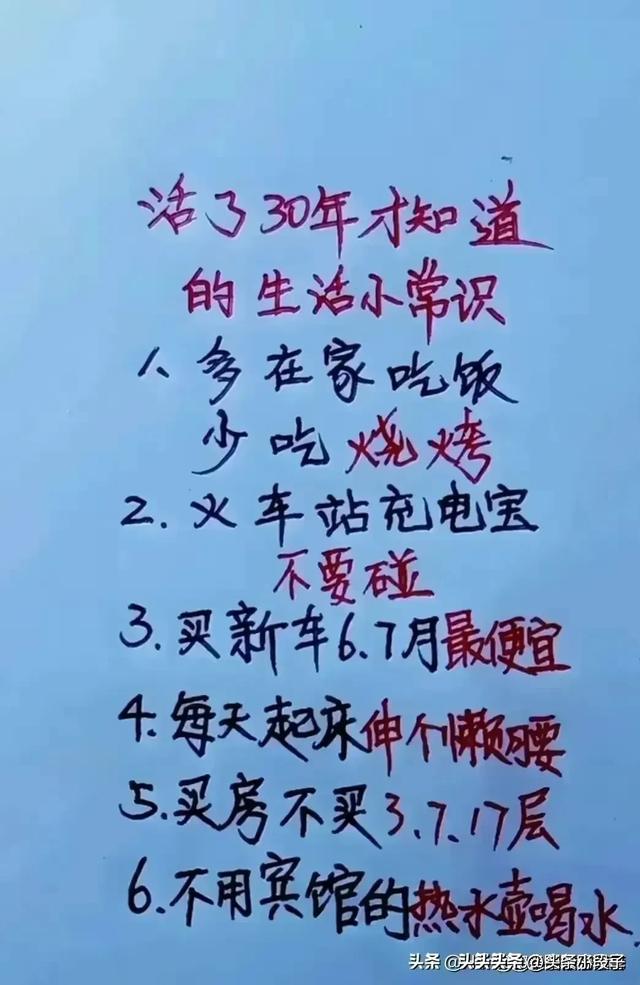 活了30年才知道
的生活小常识
1、多在家吃饭
少吃烧烤
2.火车站充电宝
不要碰
3.买新车6.7月最便宜
4.每天起床伸个懒腰
5.买房不买3.7.17层
6.不用宾馆的热水壶喝水
头条 @头条